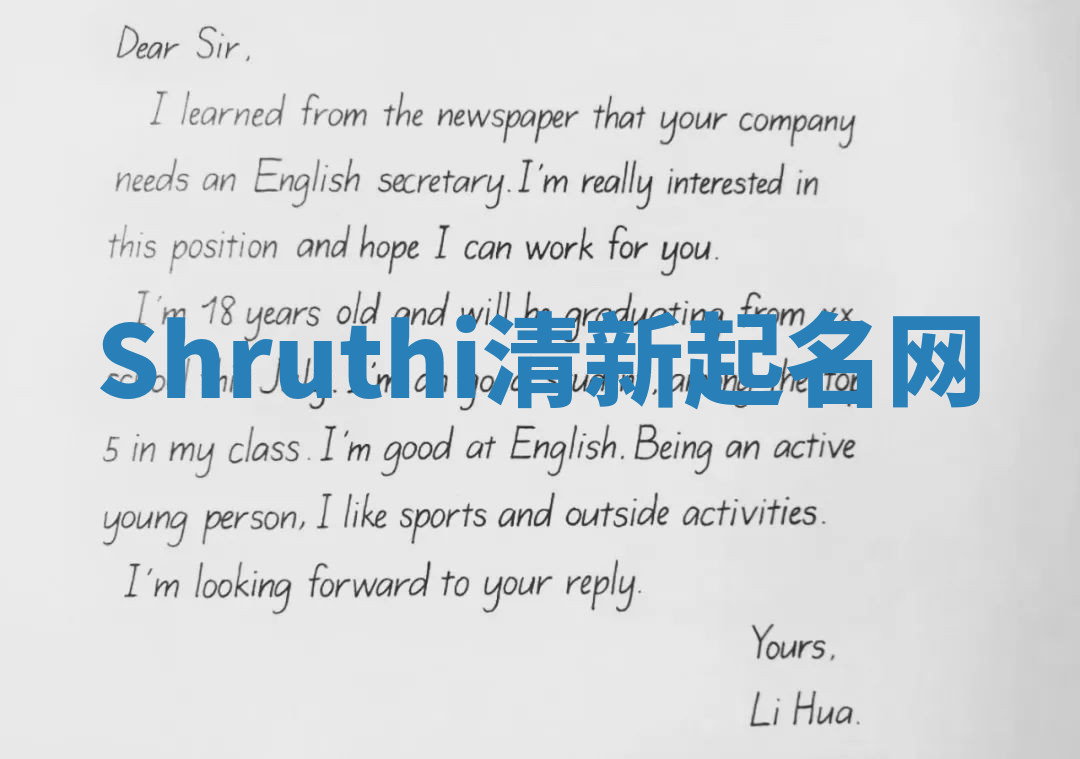 Dear Sir,
I learned from the newspaper that your company
needs an English secretary. I'm really interested in
this position and hope I can work for you.
I'm 18 years old and will be graduating from xx
Shruthi清新起名网
school this July. I'm an good student, among the top
5 in my class. I'm good at English. Being an active
young person, I like sports and outside activities.
I'm looking forward to your reply.
Yours,
Li Hua.